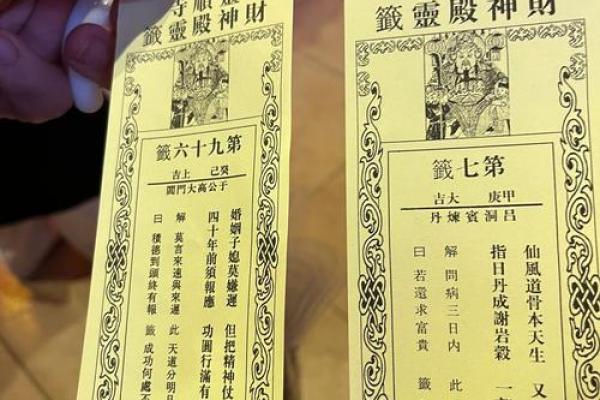 財神殿靈籤
第九十六籤
癸己 上吉
于公高大門閭
婚姻子媳莫嫌遲 但把精神仗
四十年前須報應 功圓行滿有
解 莫言來速與來遲 此 天道分明
曰 積德到頭終有報 籤 成功何處不
財神殿靈籤
第七籤
甲庚 大吉
呂洞賓煉丹
仙風道骨本天生 又
指日丹成謝岩穀 一
解 問病三日內 此
曰 若還求富貴 籤